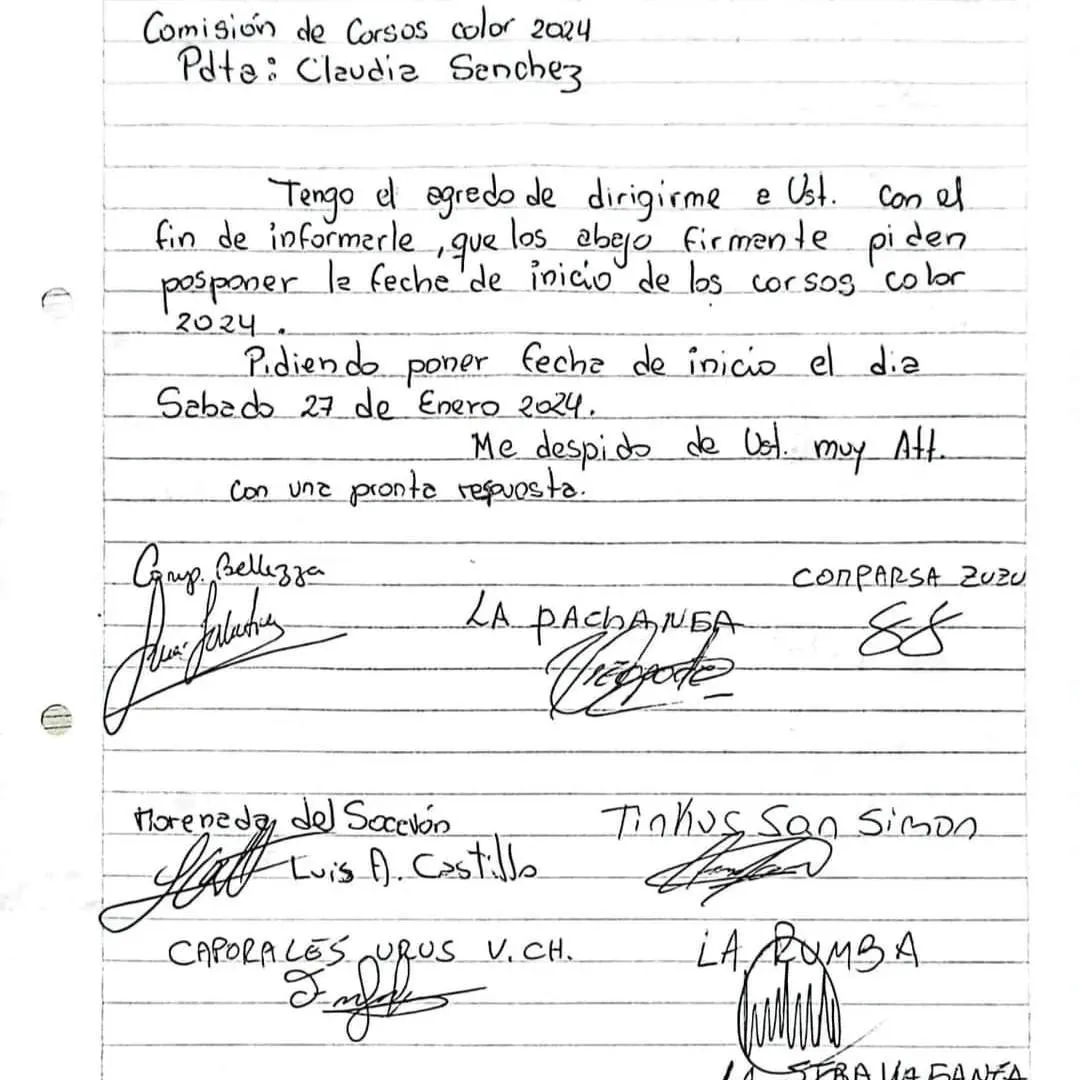 Comisión de Corsos color 2024
Pdta: Claudia Sanchez
Tengo el agrado de dirigirme a Ust. con el
fin de informarle, que los abajo firmante piden
posponer la fecha de inicio de los corsos color
2024.
Pidiendo poner fecha de inicio el dia
Sabado 27 de Enero 2024.
Me despido de Ust. muy Att.
con una pronta respuosta.
Comp. Bellezza
COMPARSA ZUZU
LA PACHANGA
Morenada del Socavón
Tinkus San Simon
Luis A. Castillo
CAPORALES URUS V. CH.
LA RUMBA